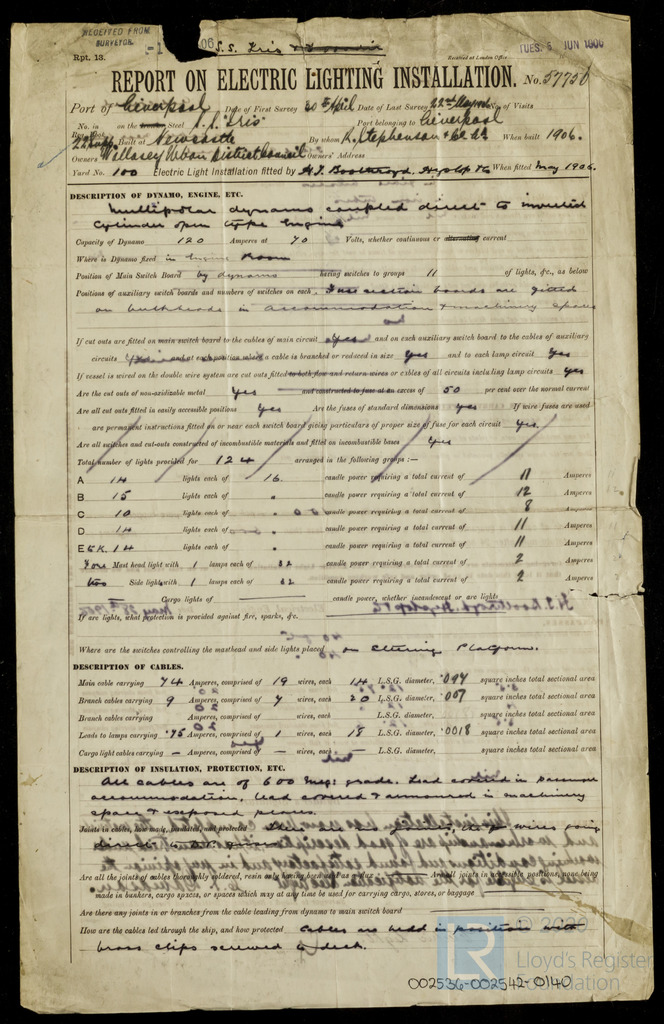 RECEIVED FROM
SURVEYOR.
06 S.S. Iris
TUES. 5 JUN 1906
Rpt. 13.
Received at London Office
REPORT ON ELECTRIC LIGHTING INSTALLATION. No. 57756
Port of Liverpool Date of First Survey 30th April Date of Last Survey 22nd No. of Visits
No. in on the Iron Steel S.S. Iris Port belonging to Liverpool
Built at Newcastle By whom R. Stephenson & Co Ld When built 1906.
Owners Wallasey Urban District Council Owners' Address
Yard No. 100 Electric Light Installation fitted by H.J. Boothroyd, Hyslop & Co When fitted May 1906.
DESCRIPTION OF DYNAMO, ENGINE, ETC.
Multipolar dynamo coupled direct to inverted
cylinder open type engine
Capacity of Dynamo 120 Amperes at 70 Volts, whether continuous or alternating current
Where is Dynamo fixed in Engine Room
Position of Main Switch Board by dynamo having switches to groups 11 of lights, &c., as below
Positions of auxiliary switch boards and numbers of switches on each section boards are fitted
on bulkheads in accommodation & machinery spaces
If cut outs are fitted on main switch board to the cables of main circuit Yes and on each auxiliary switch board to the cables of auxiliary
circuits and at each position where a cable is branched or reduced in size Yes and to each lamp circuit Yes
If vessel is wired on the double wire system are cut outs fitted to both flow and return wires or cables of all circuits including lamp circuits Yes
Are the cut outs of non-oxidizable metal Yes and constructed to fuse at an excess of 50 per cent over the normal current
Are all cut outs fitted in easily accessible positions Yes Are the fuses of standard dimensions Yes If wire fuses are used
are permanent instructions fitted on or near each switch board giving particulars of proper size of fuse for each circuit Yes.
Are all switches and cut-outs constructed of incombustible materials and fitted on incombustible bases Yes
Total number of lights provided for 124 arranged in the following groups :—
A 14 lights each of 16. candle power requiring a total current of 11 Amperes
B 15 lights each of " candle power requiring a total current of 12 Amperes
C 10 lights each of " candle power requiring a total current of 8 Amperes
D 14 lights each of " candle power requiring a total current of 11 Amperes
E &K. 14 lights each of " candle power requiring a total current of 11 Amperes
Four Mast head light with 1 lamps each of 32 candle power requiring a total current of 2 Amperes
Two Side light with 1 lamps each of 32 candle power requiring a total current of 2 Amperes
Cargo lights of candle power, whether incandescent or arc lights
If arc lights, what protection is provided against fire, sparks, &c.
Where are the switches controlling the masthead and side lights placed on Steering Platform.
DESCRIPTION OF CABLES.
Main cable carrying 74 Amperes, comprised of 19 wires, each 14 L.S.G. diameter, .094 square inches total sectional area
Branch cables carrying 9 Amperes, comprised of 7 wires, each 20 L.S.G. diameter, .007 square inches total sectional area
Branch cables carrying Amperes, comprised of wires, each L.S.G. diameter, square inches total sectional area
Leads to lamps carrying .75 Amperes, comprised of 1 wires, each 18 L.S.G. diameter, .0018 square inches total sectional area
Cargo light cables carrying — Amperes, comprised of — wires, each L.S.G. diameter, square inches total sectional area
DESCRIPTION OF INSULATION, PROTECTION, ETC.
All cables are of 600 Meg: grade. Lead covered in
accommodation, lead covered & armoured in machinery
space & exposed places.
Joints in cables, how made, insulated, and protected
Are all the joints of cables thoroughly soldered, resin only having been used as a flux Are all joints in accessible positions, none being
made in bunkers, cargo spaces, or spaces which may at any time be used for carrying cargo, stores, or baggage
Are there any joints in or branches from the cable leading from dynamo to main switch board
How are the cables led through the ship, and how protected Cables are held in position with
brass clips screwed to deck.
© 2020
LR Lloyd's Register
Foundation
002536-002542-0140